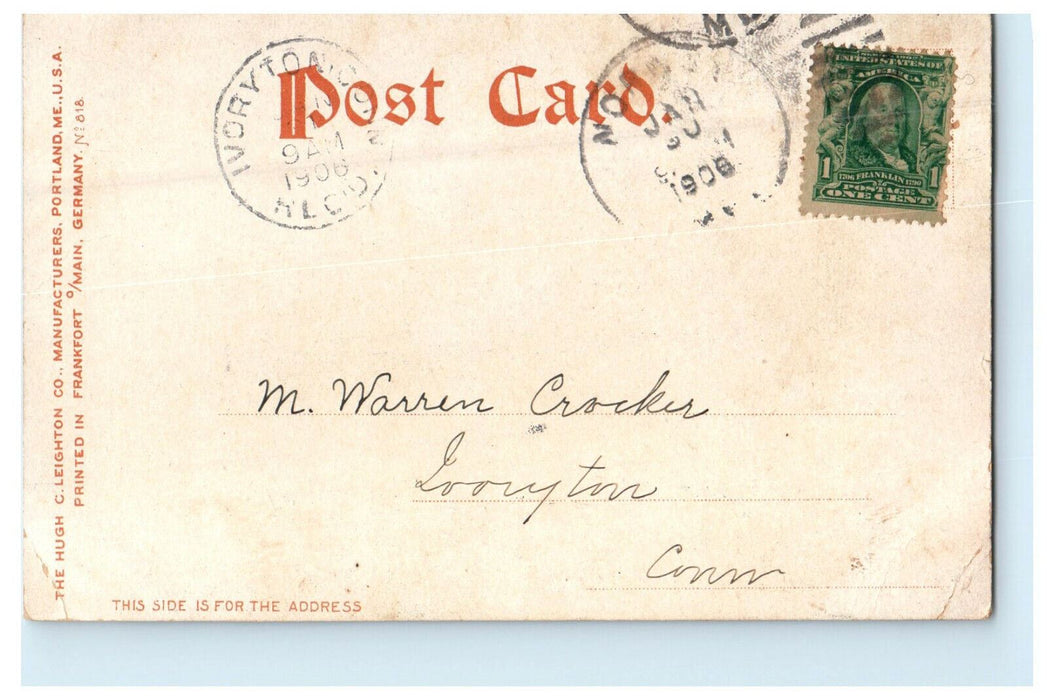 Post Card.
IVORYTON, CONN.
9 AM
1906
REC'D.
1906
UNITED STATES OF
AMERICA
1 1
1706 FRANKLIN 1790
POSTAGE
ONE CENT
THE HUGH C. LEIGHTON CO., MANUFACTURERS, PORTLAND, ME., U.S.A.
PRINTED IN FRANKFORT o/MAIN, GERMANY. No 818
M. Warren Crocker
Ivoryton
Conn
THIS SIDE IS FOR THE ADDRESS